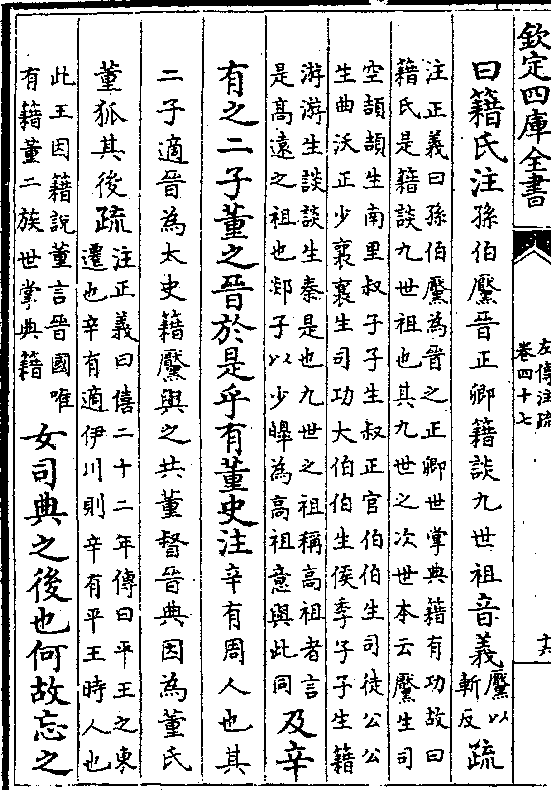 欽定四庫全書
左傳注疏
卷四十七
十六
曰籍氏注孫伯黶晉正卿籍談九世祖音義黶以
斬反疏
注正義曰孫伯黶為晉之正卿世掌典籍有功故曰
籍氏是籍談九世祖也其九世之次世本云黶生司
空頡頡生南里叔子子生叔正官伯伯生司徒公公
生曲沃正少襄襄生司功大伯伯生侯季子子生籍
游游生談談生秦是也九世之祖稱高祖者言
是高遠之祖也郯子以少皥為高祖意與此同及辛
有之二子董之晉於是乎有董史注辛有周人也其
二子適晉為太史籍黶與之共董督晉典因為董氏
董狐其後疏注正義曰僖二十二年傳曰平王之東
遷也辛有適伊川則辛有平王時人也
此王因籍說董言晉國唯
有籍董二族世掌典籍女司典之後也何故忘之